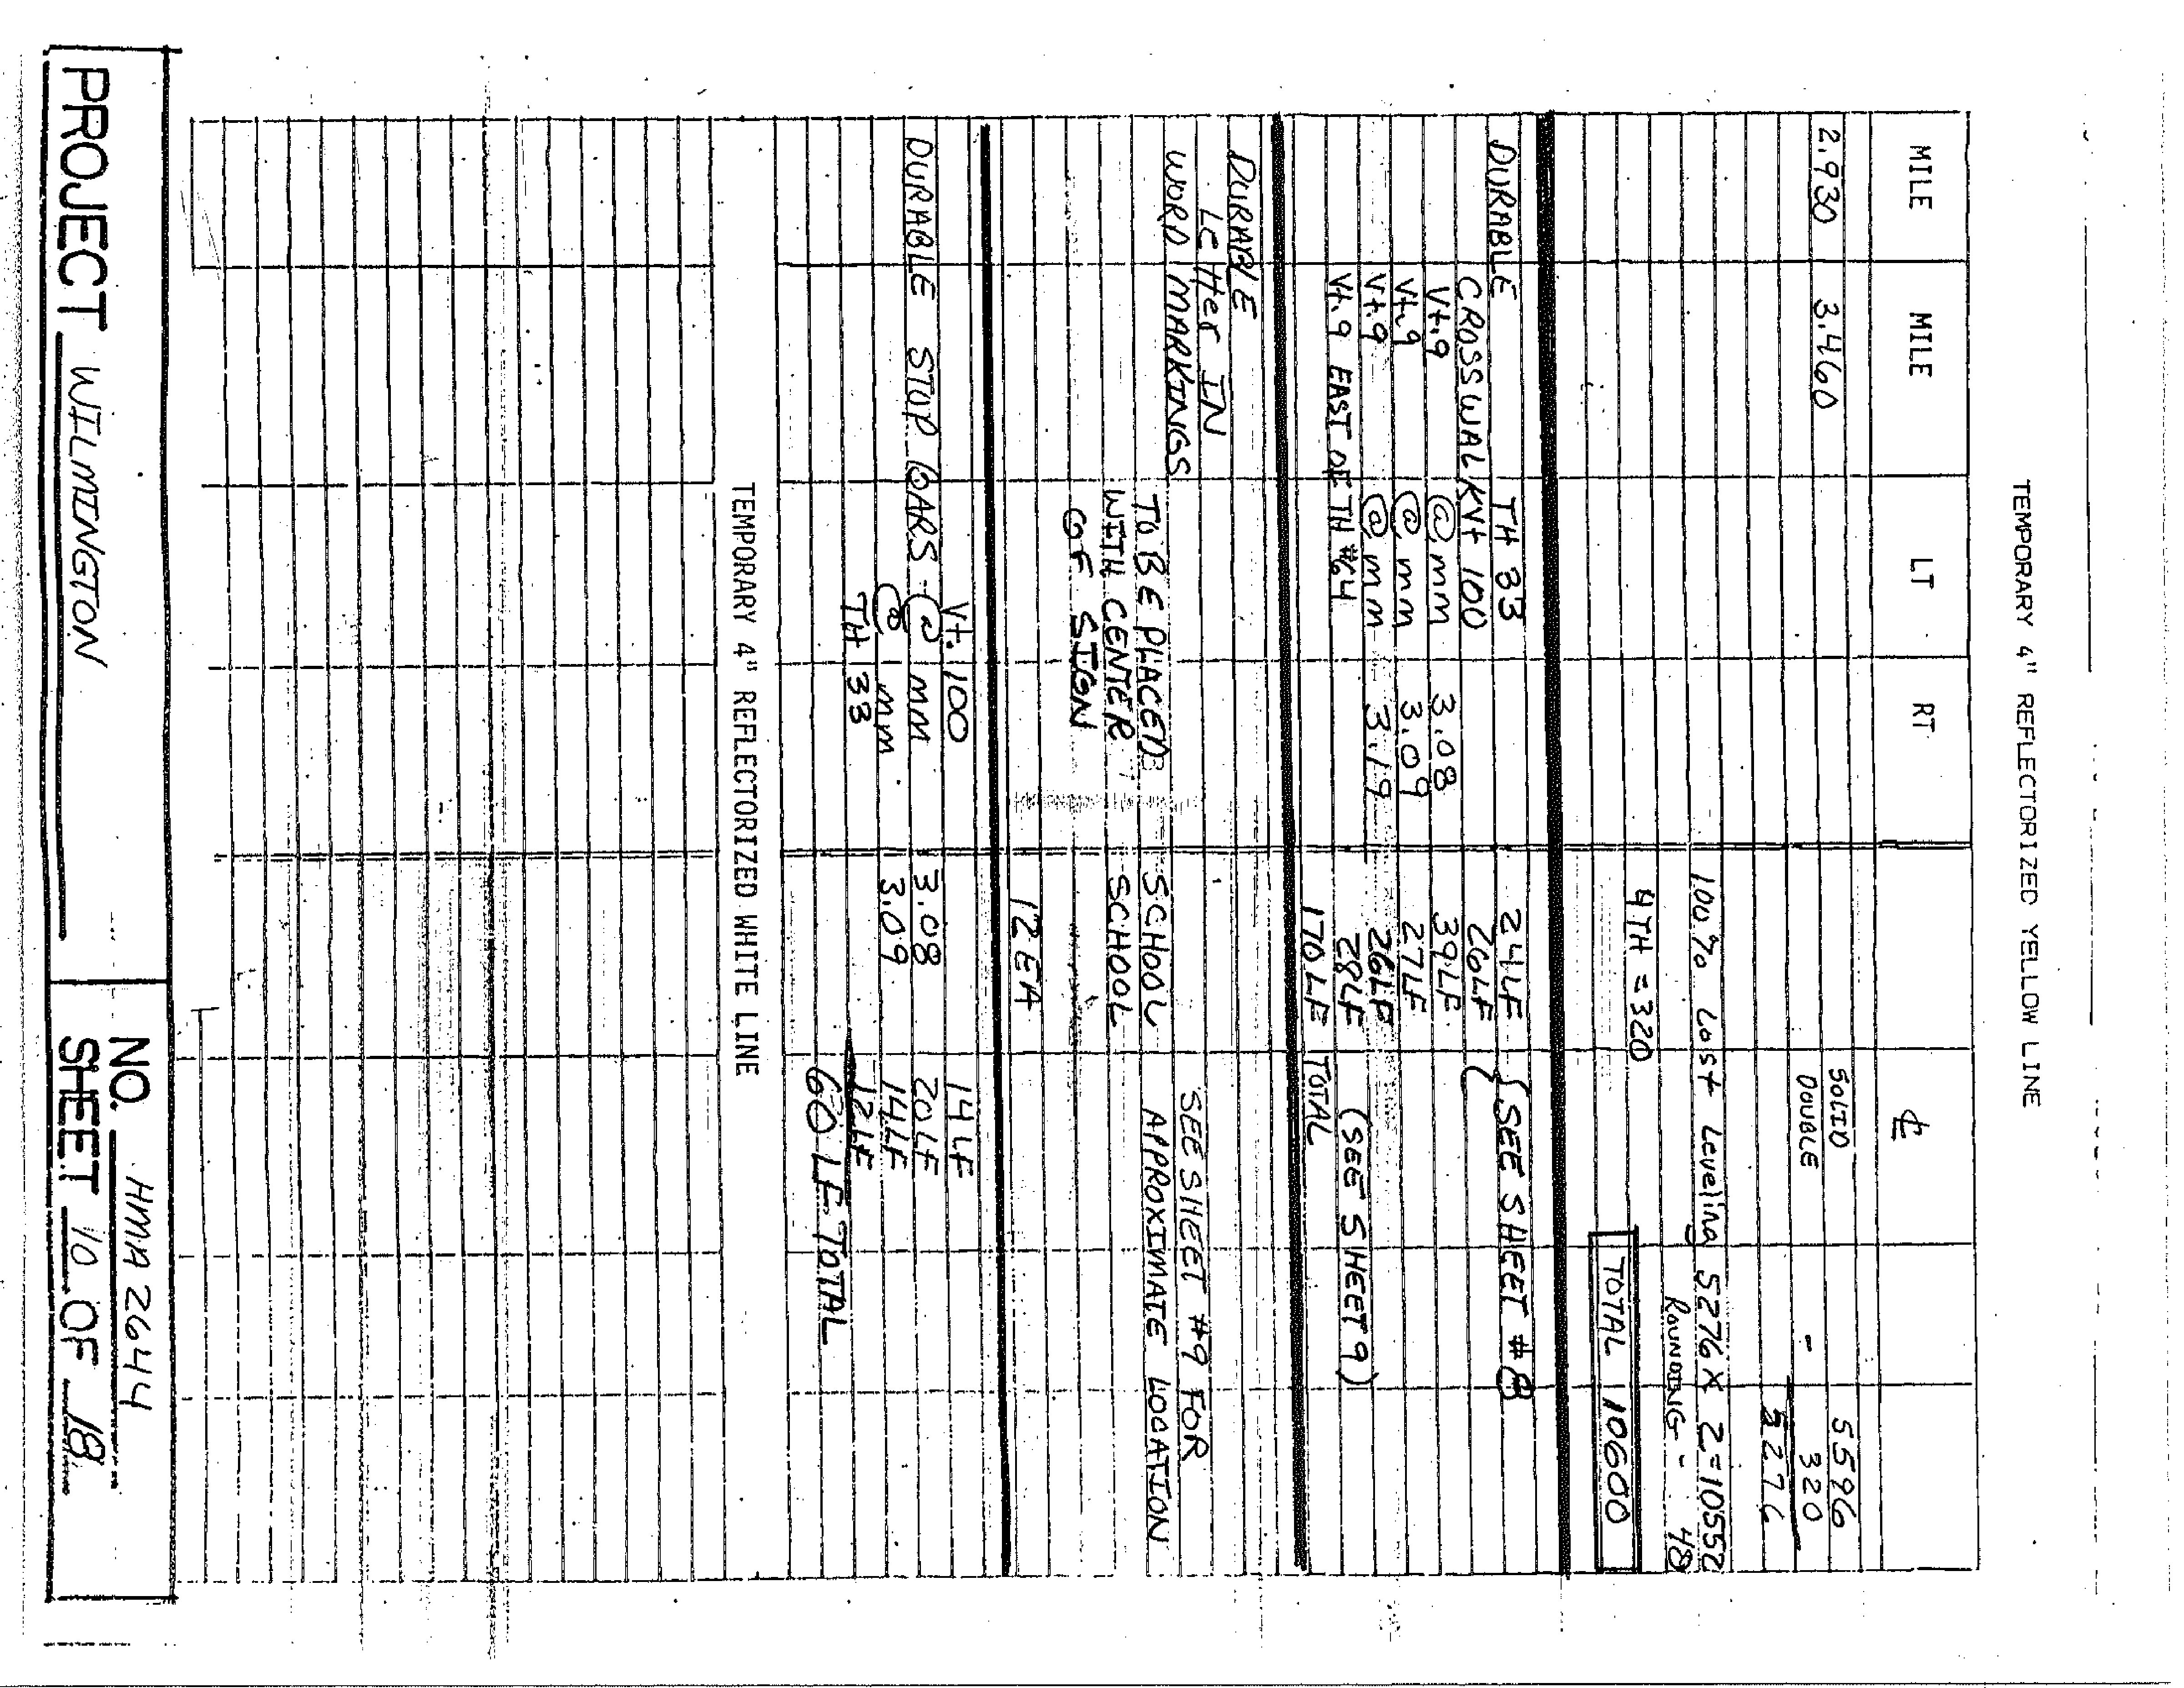 TEMPORARY 4" REFLECTORIZED YELLOW LINE
MILE MILE LT RT ℄
SOLID 5596
2.930 3.460 DOUBLE - 320
5276
100% Lost Leveling 5276 X 2 = 10552
ROUNDING - 48
4TH = 320
TOTAL 10600
DURABLE TH 33 24LF (SEE SHEET #8
CROSSWALK Vt 100 26LF
Vt.9 @ mm 3.08 39LF
Vt.9 @ mm 3.09 27LF
Vt.9 @ mm 3.19 26LF
Vt.9 EAST OF TH #64 28LF (SEE SHEET 9)
170LF TOTAL
DURABLE
Letter IN SEE SHEET #9 FOR
WORD MARKINGS TO BE PLACED SCHOOL APPROXIMATE LOCATION
WITH CENTER SCHOOL
OF SIGN
12 EA
Vt. 100 14 LF
DURABLE STOP BARS @ mm 3.08 20LF
@ mm 3.09 14LF
TH 33 12LF
60 LF TOTAL
TEMPORARY 4" REFLECTORIZED WHITE LINE
PROJECT WILMINGTON
NO. HMA 2644
SHEET 10 OF 18